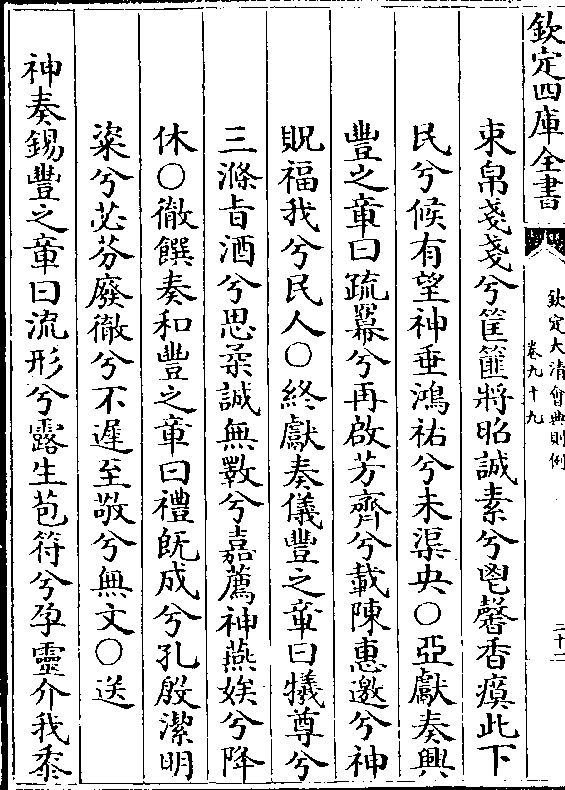 欽定四庫全書
欽定大清會典則例
卷九十九
二十二
束帛戔戔兮筐篚將昭誠素兮鬯馨香瘼此下
民兮候有望神垂鴻祐兮未渠央○亞獻奏興
豐之章曰疏羃兮再啟芳齊兮載陳惠邀兮神
貺福我兮民人○終獻奏儀豐之章曰犧尊兮
三滌旨酒兮思柔誠無斁兮嘉薦神燕娭兮降
休○徹饌奏和豐之章曰禮既成兮孔殷潔明
粢兮苾芬廢徹兮不遲至敬兮無文○送
神奏錫豐之章曰流形兮露生苞符兮孕靈介我黍